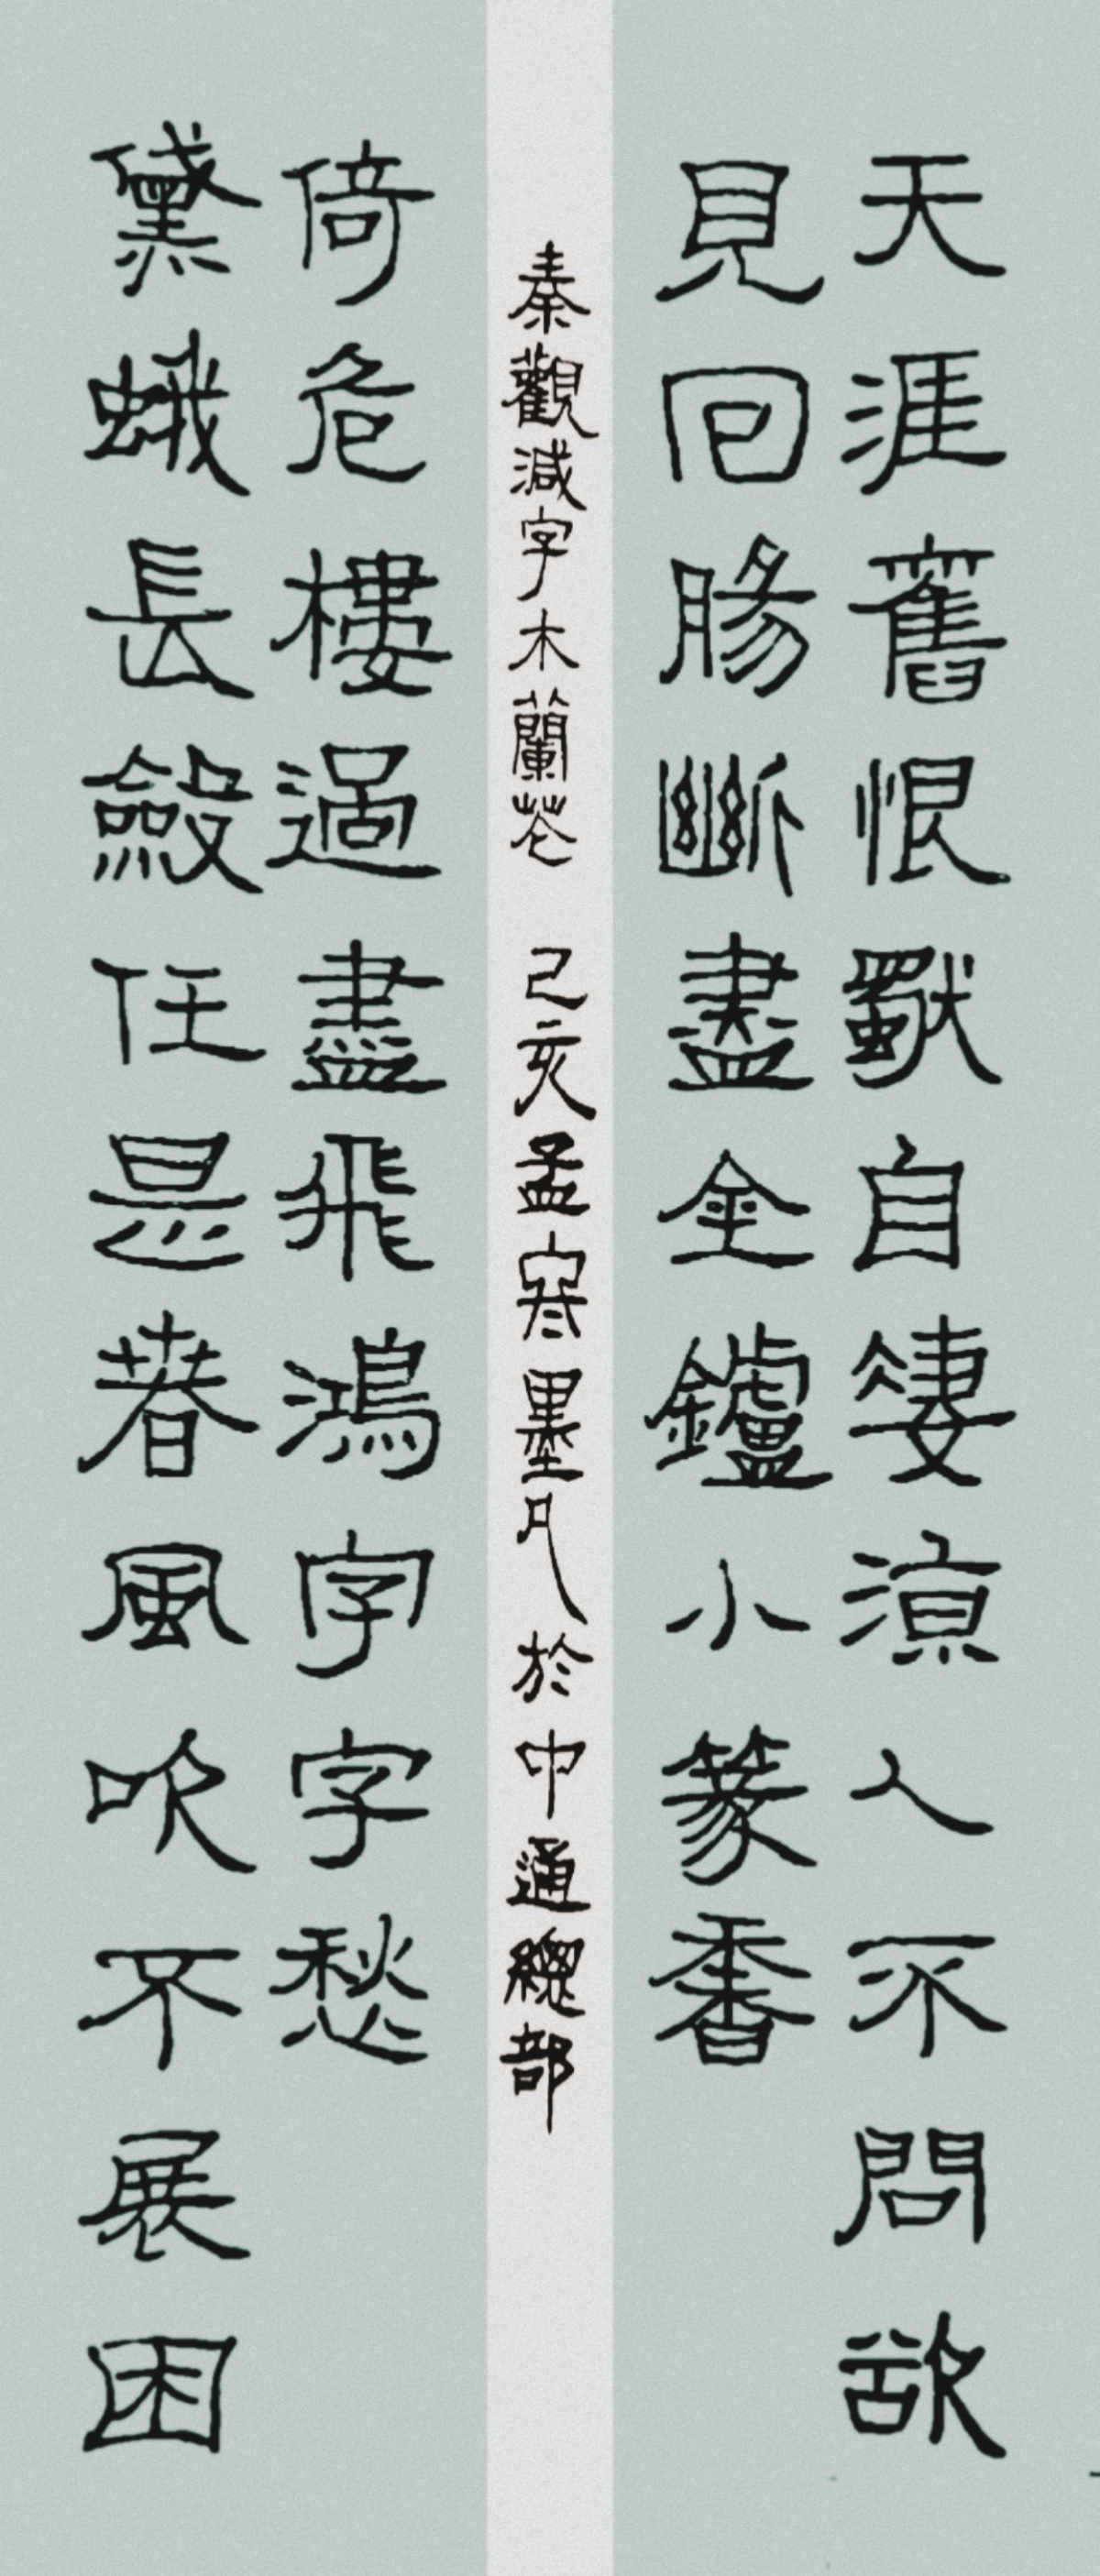 天涯舊恨獨自凄涼人不問欲
見回腸斷盡金鑪小篆香
黛蛾長斂任是春風吹不展困
倚危樓過盡飛鴻字字愁
秦觀減字木蘭花 己亥孟寒墨於中通總部